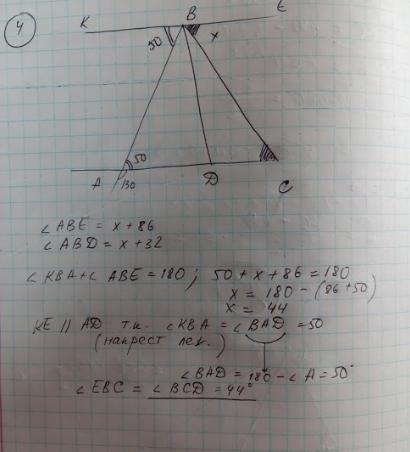 4
K B E
50 x
50
A 130 D C
∠ABE = x + 86
∠ABD = x + 32
∠KBA + ∠ABE = 180; 50 + x + 86 = 180
x = 180 - (86 + 50)
x = 44
KE || AD т.к. ∠KBA = ∠BAD = 50
(накрест леж.)
∠BAD = 180 - ∠A = 50°
∠EBC = ∠BCD = 44°